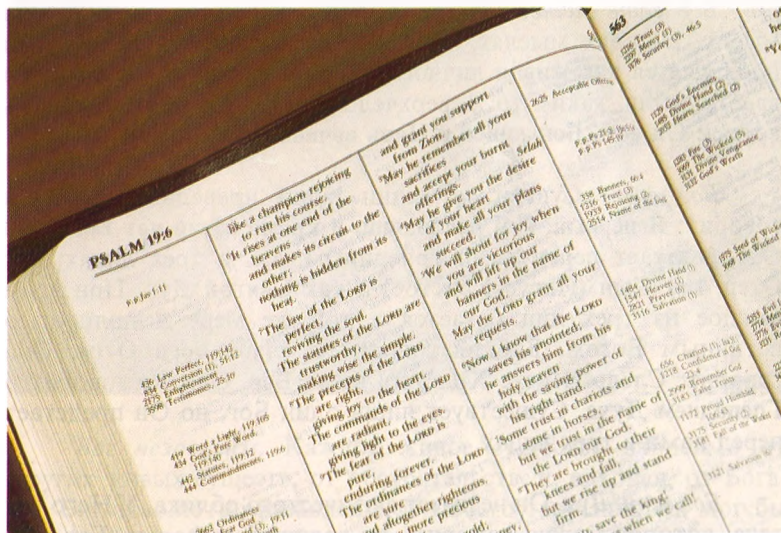 PSALM 19:6
P P Jos 1-11
456 Law Perfect, 119:142
834 Conversion (1), 51:12
2175 Enlightenment
3598 Testimonies, 25:10
419 Word a Light, 119:105
454 God's Pure Word,
119:140
443 Statutes, 119:12
444 Commandments, 119:6
Ordinances
Fear God
like a champion rejoicing
to run his course.
It rises at one end of the
heavens
and makes its circuit to the
other;
nothing is hidden from its
heat.
The law of the LORD is
perfect,
reviving the soul.
The statutes of the LORD are
trustworthy,
making wise the simple.
The precepts of the LORD
are right,
giving joy to the heart.
The commands of the LORD
are radiant,
giving light to the eyes.
The fear of the LORD is
pure,
enduring forever.
The ordinances of the LORD
are sure
and altogether righteous.
more precious
and grant you support
from Zion.
May he remember all your
sacrifices
and accept your burnt
offerings. Selah
May he give you the desire
of your heart
and make all your plans
succeed.
We will shout for joy when
you are victorious
and will lift up our
banners in the name of
our God.
May the LORD grant all your
requests.
Now I know that the LORD
saves his anointed;
he answers him from his
holy heaven
with the saving power of
his right hand.
Some trust in chariots and
some in horses,
but we trust in the name of
the LORD our God.
They are brought to their
knees and fall,
but we rise up and stand
firm.
save the king!
when we call!
2625 Acceptable Offering
P P Ps 145:19
338 Banners, 60:4
1216 Trust (3)
1933 Rejoicing (2)
2514 Name of the Lord
1484 Divine Hand (1)
1547 Heaven (1)
2825 Prayer (6)
3516 Salvation (1)
656 Chariots (1)
1218 Confidence in God
2999 Remember God
3183 False Trusts
563
1216 Trust (3)
2297 Mercy (1)
3176 Security (3), 46:5
1129 God's Enemies
1485 Divine Hand (2)
2053 Hearts Searched (2)
1283 Fire (3)
3069 The Wicked (5)
3131 Divine Vengeance
3132 God's Wrath